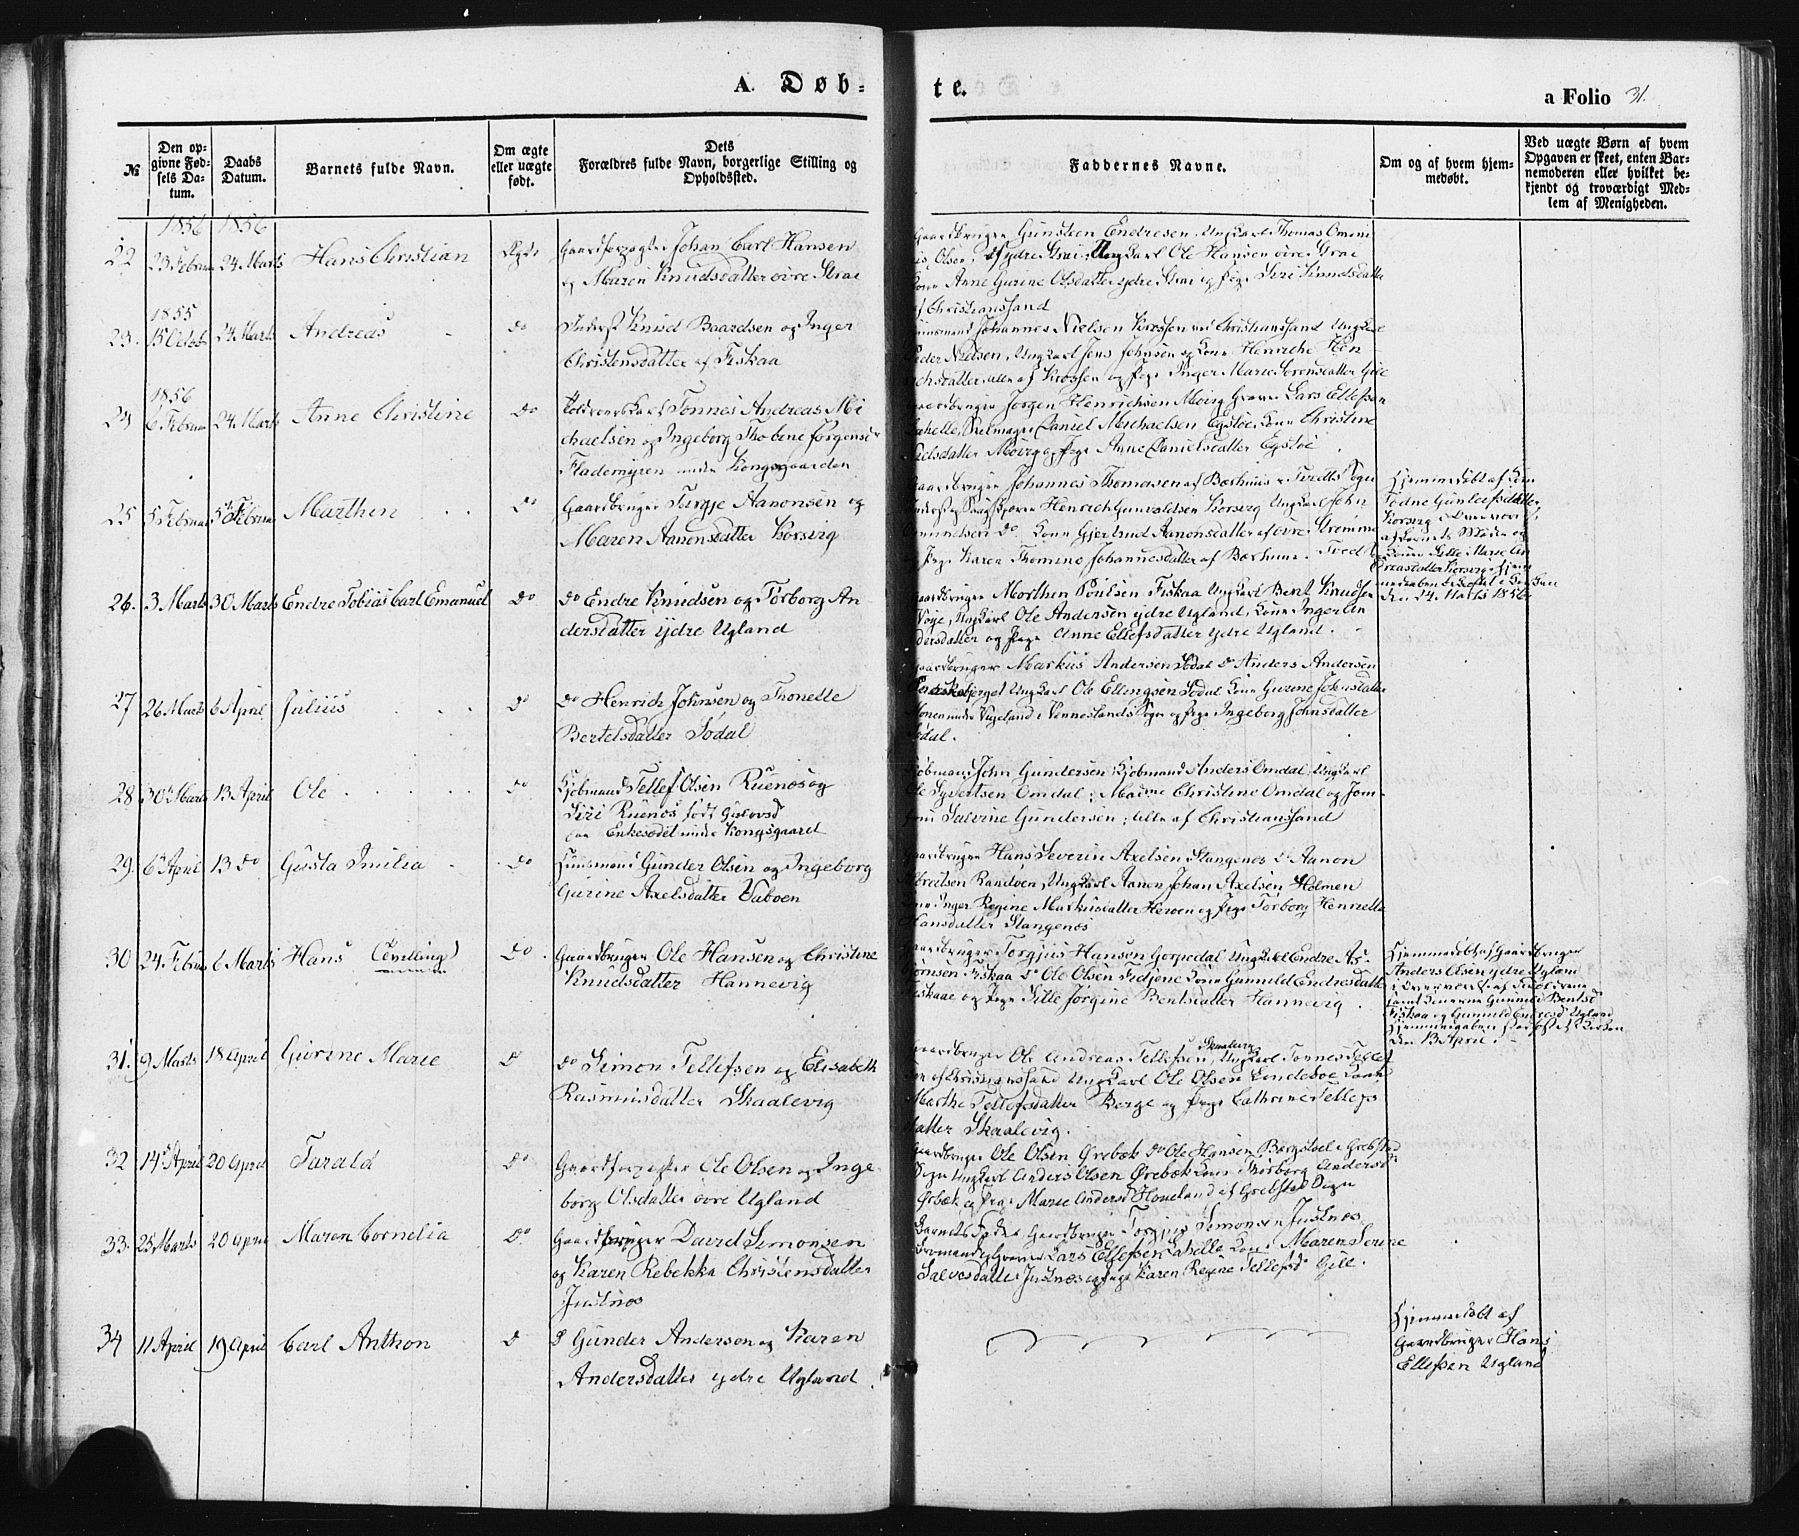 A. Døb-
te.
a Folio 31.
№
Den op-
givne Fød-
sels Da-
tum.
Daabs
Datum.
Barnets fulde Navn.
Om ægte
eller uægte
født.
Dets
Forældres fulde Navn, borgerlige Stilling og
Opholdssted.
Faddernes Navne.
Om og af hvem hjem-
medøbt.
Ved uægte Børn af hvem
Opgaven er skeet, enten Bar-
nemoderen eller hvilket be-
kjendt og troværdigt Med-
lem af Menigheden.
1856 1856
22 23 Februar 24 Marts Hans Christian Ægte
Gaardforpagter Johan Carl Hansen
og Maren Knudsdatter øvre Strai
Gaardbruger Gunsten Endresen, Ungkarl Thomas
Olsen, ydre Strai, Ungkarl Ole Hansen øvre Strai
Kone Anne Gurine Olsdatter ydre Strai og Pige Siri Knudsdatter
af Christianssand
1855
23. 15 Octob 24 Marts Andreas do
Inderst Knud Baardsen og Inger
Christensdatter af Fiskaa
Huusmand Johannes Nielsen Krossen ved Christianssand Ungkarl
Peder Nielsen, Ungkarl Jens Johnsen og Kone Henriche Hen
richsdatter, alle af Krossen og Pige Inger Marie Sørensdatter
1856
24 6 Februar 24 Marts Anne Christine do
Tønnes Andreas Mi
chaelsen og Ingeborg Thobene Jørgensd
Flademyren under Kongsgaarden
Gaardbruger Jørgen Henrichsen Møvig Graver Lars Ellefsen
Daniel Michaelsen Egstøe, Kone Christine
Nielsdatter Møvig og Pige Anne Danielsdatter Egstøe
25 5 Februar 5 Februar Marthin do
Gaardbruger Tergje Aanonsen og
Maren Aanonsdatter Korsvig
Gaardbruger Johannes Thomasen af Bærhuus Tveits Sogn
Henrich Gunvaldsen Korsvig Ungkarl John
Omundsen do Kone Gjertrud Aanonsdatter af øvre Strømme
og Pige Karen Thomine Johannesdatter af Bærhuus Tveit
Hjemmedøbt af Kone
Tødne Gunleifsdatter
Korsvig i Overvær
af Barnets Moder og
Kone Sille Marie An
dreasdatter Korsvig
den 24 Marts 1856
26. 3 Marts 30 Marts Endre Tobias Carl Emanuel do
do Endre Knudsen og Torborg An
dersdatter ydre Ugland
Gaardbruger Morthen Poulsen Fiskaa Ungkarl Bent Knudsen
Voie, Ungkarl Ole Andersen ydre Ugland, Kone Inger An
dersdatter og Pige Anne Ellefsdatter ydre Ugland.
27 26 Marts 6 April Julius do
do Henrich Johnsen og Thonette
Bertelsdatter Sødal
Gaardbruger Markus Andersen Sødal do Anders Andersen
Ungkarl Ole Ellingsen Sødal Kone Gurine Johnsdatter
Monen under Vigeland i Venneslands Sogn og Pige Ingeborg Johnsdatter
Sødal.
28 30 Marts 13 April Ole do
Kjøbmand Tellef Olsen Ruenæs og
Siri Ruenæs født Guslovsd
paa Enkesædet under Kongsgaard
Kjøbmand John Gundersen, Kjøbmand Anders Omdal, Ungkarl
Ole Syvertsen Omdal; Madme Christine Omdal og Jom-
fru Salvine Gundersen; alle af Christianssand
29. 6 April 13 do Gusta Emilia do
Huusmand Gunder Olsen og Ingeborg
Gurine Axelsdatter Vaboen
Gaardbruger Hans Severin Axelsen Stangenæs do Aanon
Albretsen Randøen, Ungkarl Aanon Johan Axelsen Holmen
Kone Inger Regine Markusdatter Herøen og Pige Torborg Henriette
Hansdatter Stangenæs
30 24 Februar 6 Marts Hans (Tvilling) do
Gaardbruger Ole Hansen og Christine
Knudsdatter Hannevig
Gaardbruger Torgjus Hansen Gorpedal Ungkarl Endre As-
bjørnsen Fiskaa do Ole Olsen Fidjene Kone Gunnild Endresdatter
Fiskaae og Pige Sille Jørgine Bentsdatter Hannevig.
Hjemmedøbt af Gaardbruger
Anders Olsen ydre Ugland
i Overvær af Forældrene
samt Konerne Gunnild Bentsd
Fiskaa og Gunnild Endresd Ugland
Hjemmedaaben stadfæstet i Kirken
den 13 April
31. 9 Marts 18 April Giorine Marie d
do Simon Tellefsen og Elisabeth
Rasmusdatter Skaalevig
Gaardbruger Ole Andreas Tellefsen Skaalevig, Ungkarl Tønnes Tellef
sen af Christianssand Ungkarl Ole Olsen Kone
Marthe Tellefsdatter Berge og Pige Cathrine Tellefs
datter Skaalevig.
32 14 April 20 April Tarald do
Gaardforpagter Ole Olsen og Inge
borg Olsdatter øvre Ugland
Gaardbruger Ole Olsen Ørebæk do Ole Hansen Bergstoel i Grebstad
Sogn Ungkarl Anders Olsen Ørebæk Kone Thorborg Andersd
Ørbæk og Pige Marie Andersd Honeland af Grebstad Sogn
33. 25 Marts 20 April Maren Cornelia do
Gaardbruger David Simonsen
og Karen Rebekka Christensdatter
Justnæs
Barnets Fader Gaardbruger Torgjus Simonsen Justnæs
Graver Lars Ellefsen Kone Maren Serine
Salvesdatter Justnæs og Pige Karen Regine Tellefsd Gill.
34 11 April 19 April Carl Anthon d
d Gunder Anderson og Karen
Andersdatter ydre Ugland.
Hjemmedøbt af
Gaardbruger Hans
Ellefsen Ugland